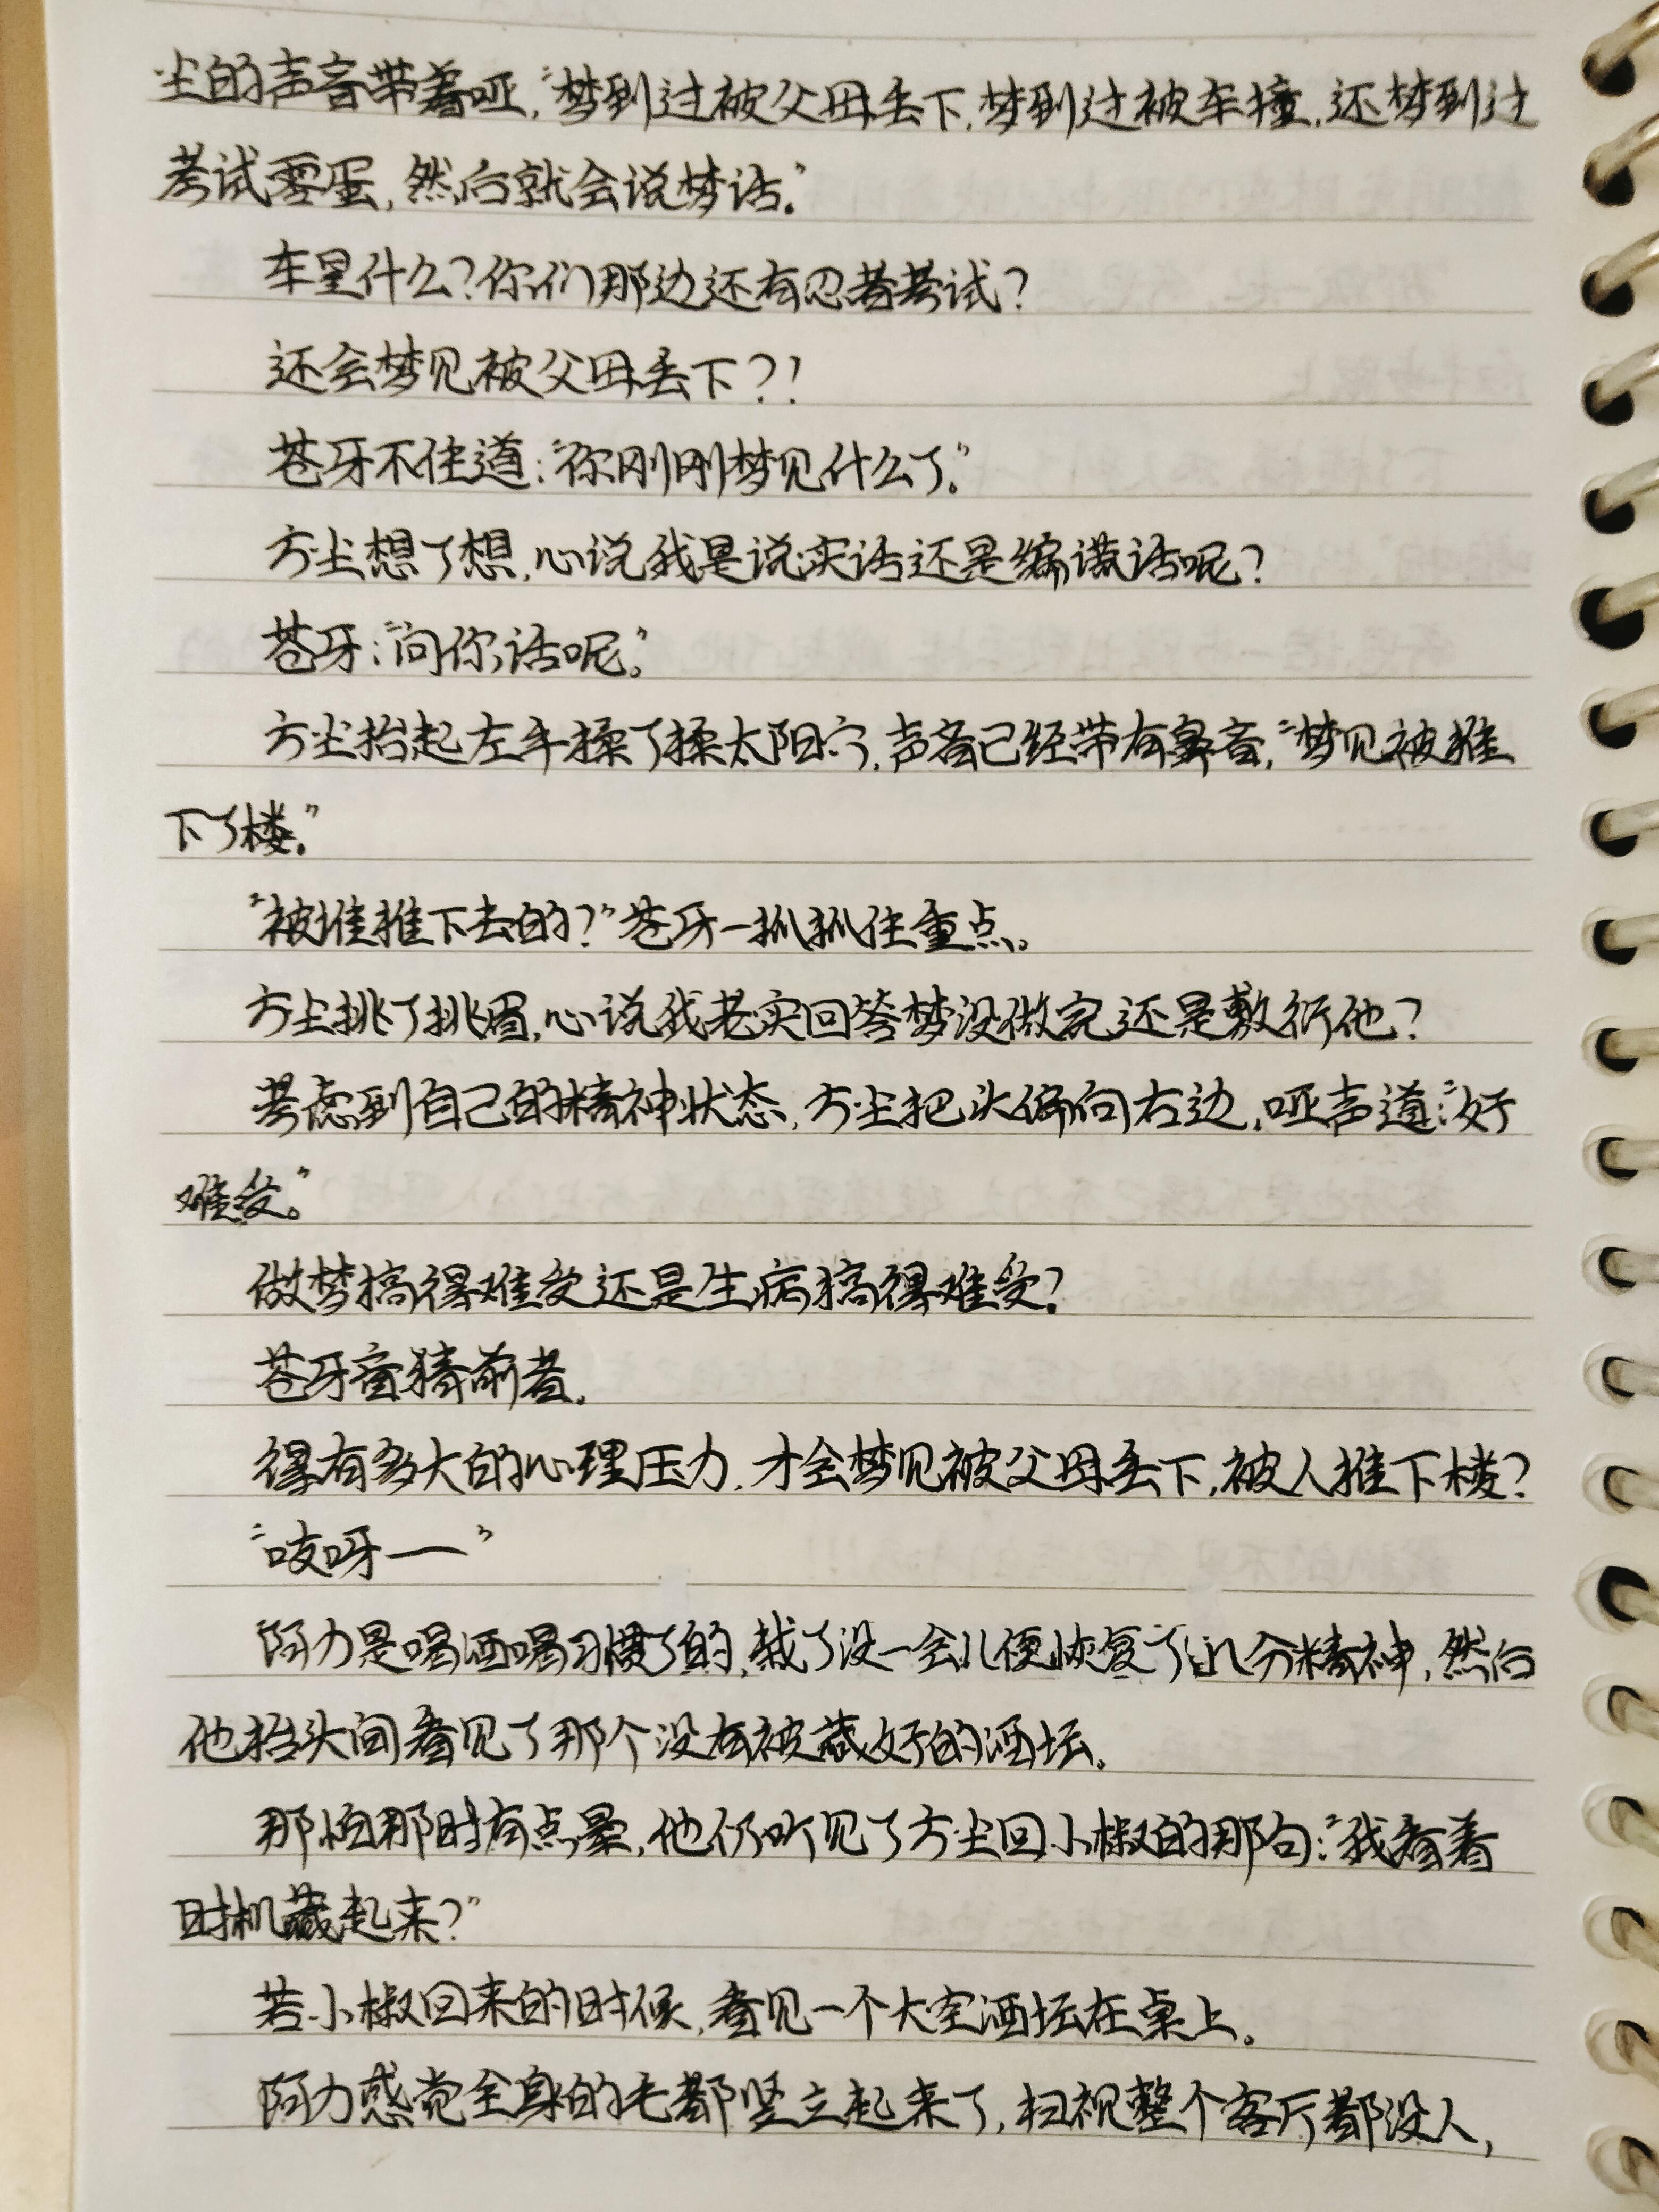 尘的声音带着哑,“梦到过被父母丢下,梦到过被车撞,还梦到过
考试零蛋,然后就会说梦话.”
车里什么?你们那边还有忍者考试?
还会梦见被父母丢下?!
苍牙不住道:“你刚刚梦见什么了.”
方尘想了想,心说我是说实话还是编谎话呢?
苍牙:“问你话呢.”
方尘抬起左手揉了揉太阳穴,声音已经带有鼻音,“梦见被推
下了楼.”
“被谁推下去的?”苍牙一抓抓住重点。
方尘挑了挑眉,心说我老实回答梦没做完还是敷衍他?
考虑到自己的精神状态,方尘把头偏向右边,哑声道:“好
难受。”
做梦搞得难受还是生病搞得难受?
苍牙盲猜前者.
得有多大的心理压力,才会梦见被父母丢下,被人推下楼?
“吱呀——”
阿力是喝酒喝习惯了的,栽了没一会儿便恢复了几分精神,然后
他抬头间看见了那个没有被藏好的酒坛。
那怕那时有点晕,他仍听见了方尘回小椒的那句:“我看着
时机藏起来?”
若小椒回来的时候,看见一个大空酒坛在桌上。
阿力感觉全身的毛都竖立起来了,扫视整个客厅都没人,